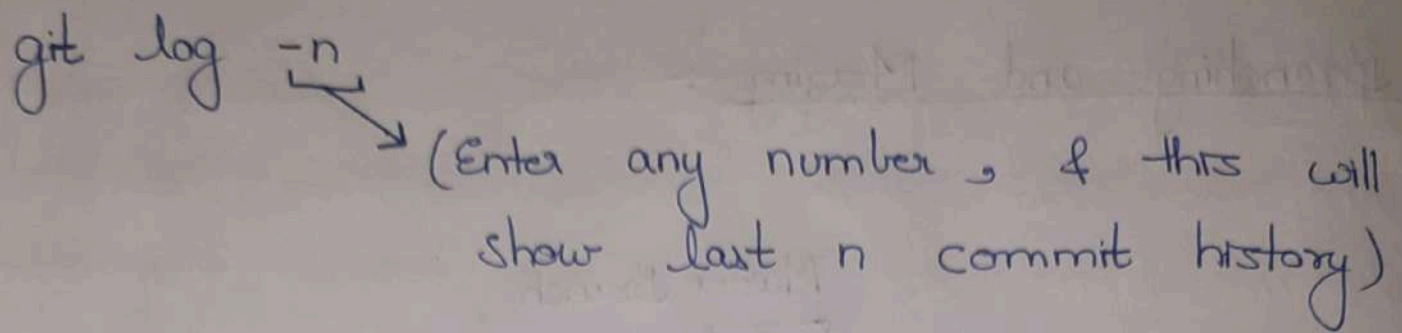 git log -n
(Enter any number, & this will
show last n commit history)